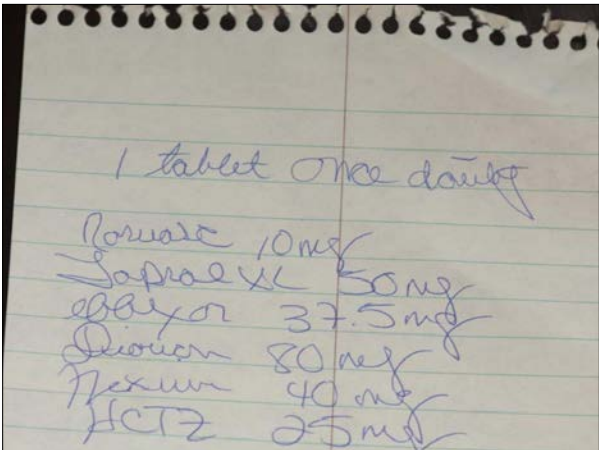 1 tablet once daily
Norvasc 10mg
Toprol XL 50mg
effexor 37.5mg
Diovan 80mg
Nexium 40mg
HCTZ 25mg